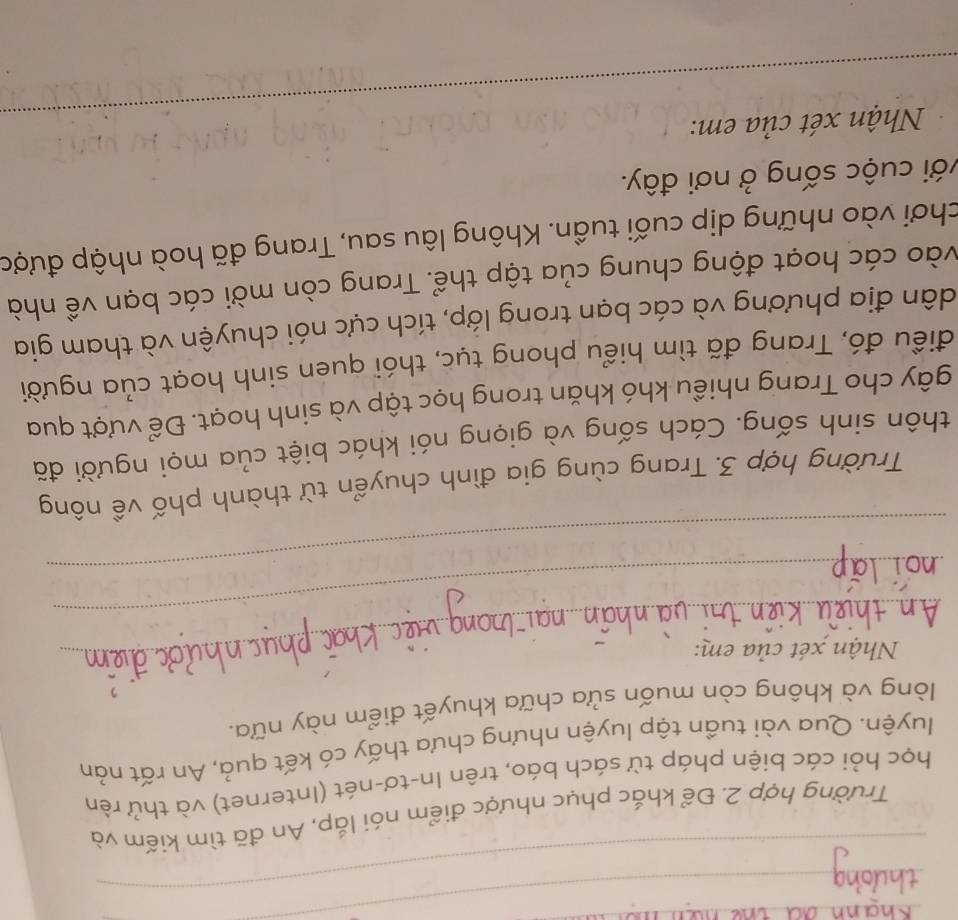 Khạnh đã thể hiện
thường
Trường hợp 2. Để khắc phục nhược điểm nói lắp, An đã tìm kiếm và
học hỏi các biện pháp từ sách báo, trên In-tơ-nét (Internet) và thử rèn
luyện. Qua vài tuần tập luyện nhưng chưa thấy có kết quả, An rất nản
lòng và không còn muốn sửa chữa khuyết điểm này nữa.
Nhận xét của em:
An thiếu kiên trì và nhẫn nại trong việc khắc phục nhược điểm
nói lắp
Trường hợp 3. Trang cùng gia đình chuyển từ thành phố về nông
thôn sinh sống. Cách sống và giọng nói khác biệt của mọi người đã
gây cho Trang nhiều khó khăn trong học tập và sinh hoạt. Để vượt qua
điều đó, Trang đã tìm hiểu phong tục, thói quen sinh hoạt của người
dân địa phương và các bạn trong lớp, tích cực nói chuyện và tham gia
vào các hoạt động chung của tập thể. Trang còn mời các bạn về nhà
chơi vào những dịp cuối tuần. Không lâu sau, Trang đã hoà nhập được
với cuộc sống ở nơi đây.
Nhận xét của em: